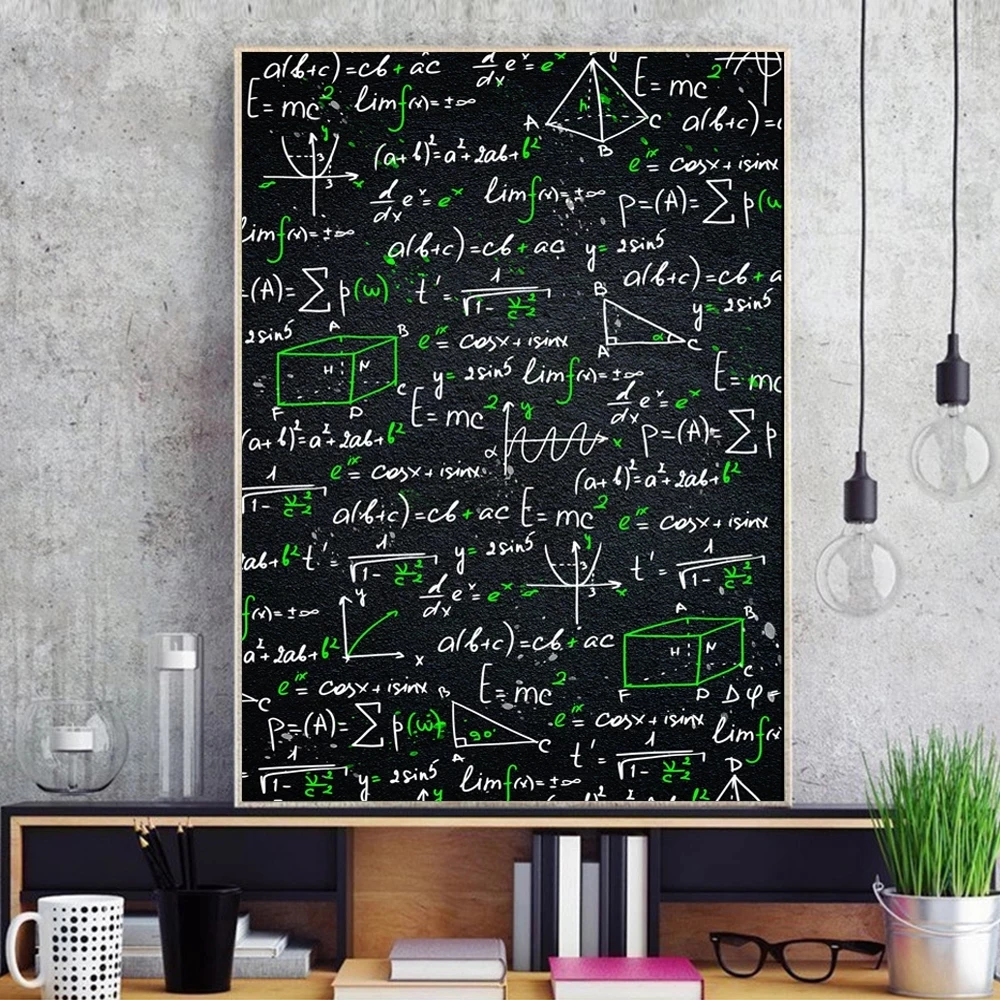 a(b+c)=cb+ac d/dx e^x=e^x
E=mc^2 lim f(x)=±∞ E=mc^2
h A C B a(b+c)=
y 3 3 x (a+b)^2=a^2+2ab+b^2 e^ix=cosx+isinx
d/dx e^x=e^x lim f(x)=±∞ p=(A)=∑p(ω
lim f(x)=±∞ a(b+c)=cb+ac y=2sin5
=(A)=∑p(ω) t'=1/√1-v^2/c^2 a(b+c)=cb+a
B A α C y=2sin5
2sin5 A B H N C F D e^ix=cosx+isinx
y=2sin5 lim f(x)=±∞ E=mc
E=mc^2 d/dx e^x=e^x
(a+b)^2=a^2+2ab+b^2 y α x p=(A)=∑p
1/√1-v^2/c^2 e^ix=cosx+isinx (a+b)^2=a^2+2ab+b^2
a(b+c)=cb+ac E=mc^2 e^ix=cosx+isinx
2ab+b^2 t'=1/√1-v^2/c^2 y=2sin5 y 3 3 x t'=1/√1-v^2/c^2
f(x)=±∞ y x d/dx e^x=e^x
a^2+2ab+b^2 a(b+c)=cb+ac A B H N C F D
C e^ix=cosx+isinx E=mc^2 Δφ
p=(A)=∑p(ω) B 90° A C e^ix=cosx+isinx lim f(x)
1/√1-v^2/c^2 y=2sin5 lim f(x)=±∞ t'=1/√1-v^2/c^2 D
y